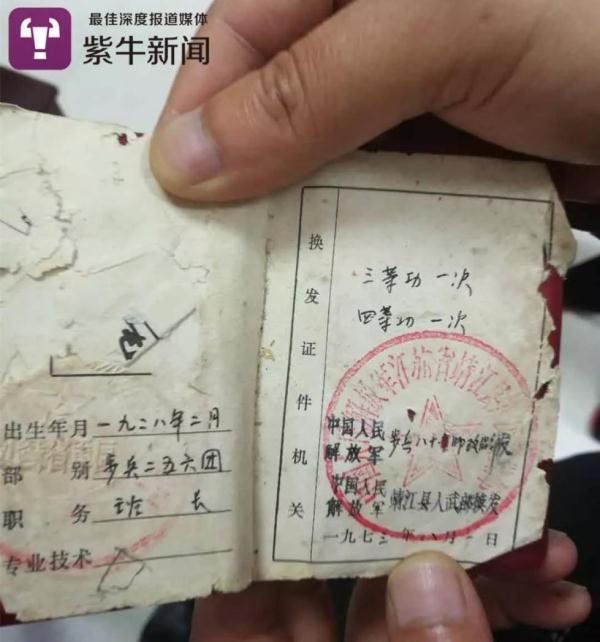 最佳深度报道媒体
紫牛新闻
出生年月 一九二八年二月
部别 步兵二五六团
职务 班长
专业技术
换发证件机关
三等功一次
四等功一次
中国人民解放军 步兵八十
中国人民解放军 靖江县人武部换发
一九七三年八月一日
江苏省靖江县